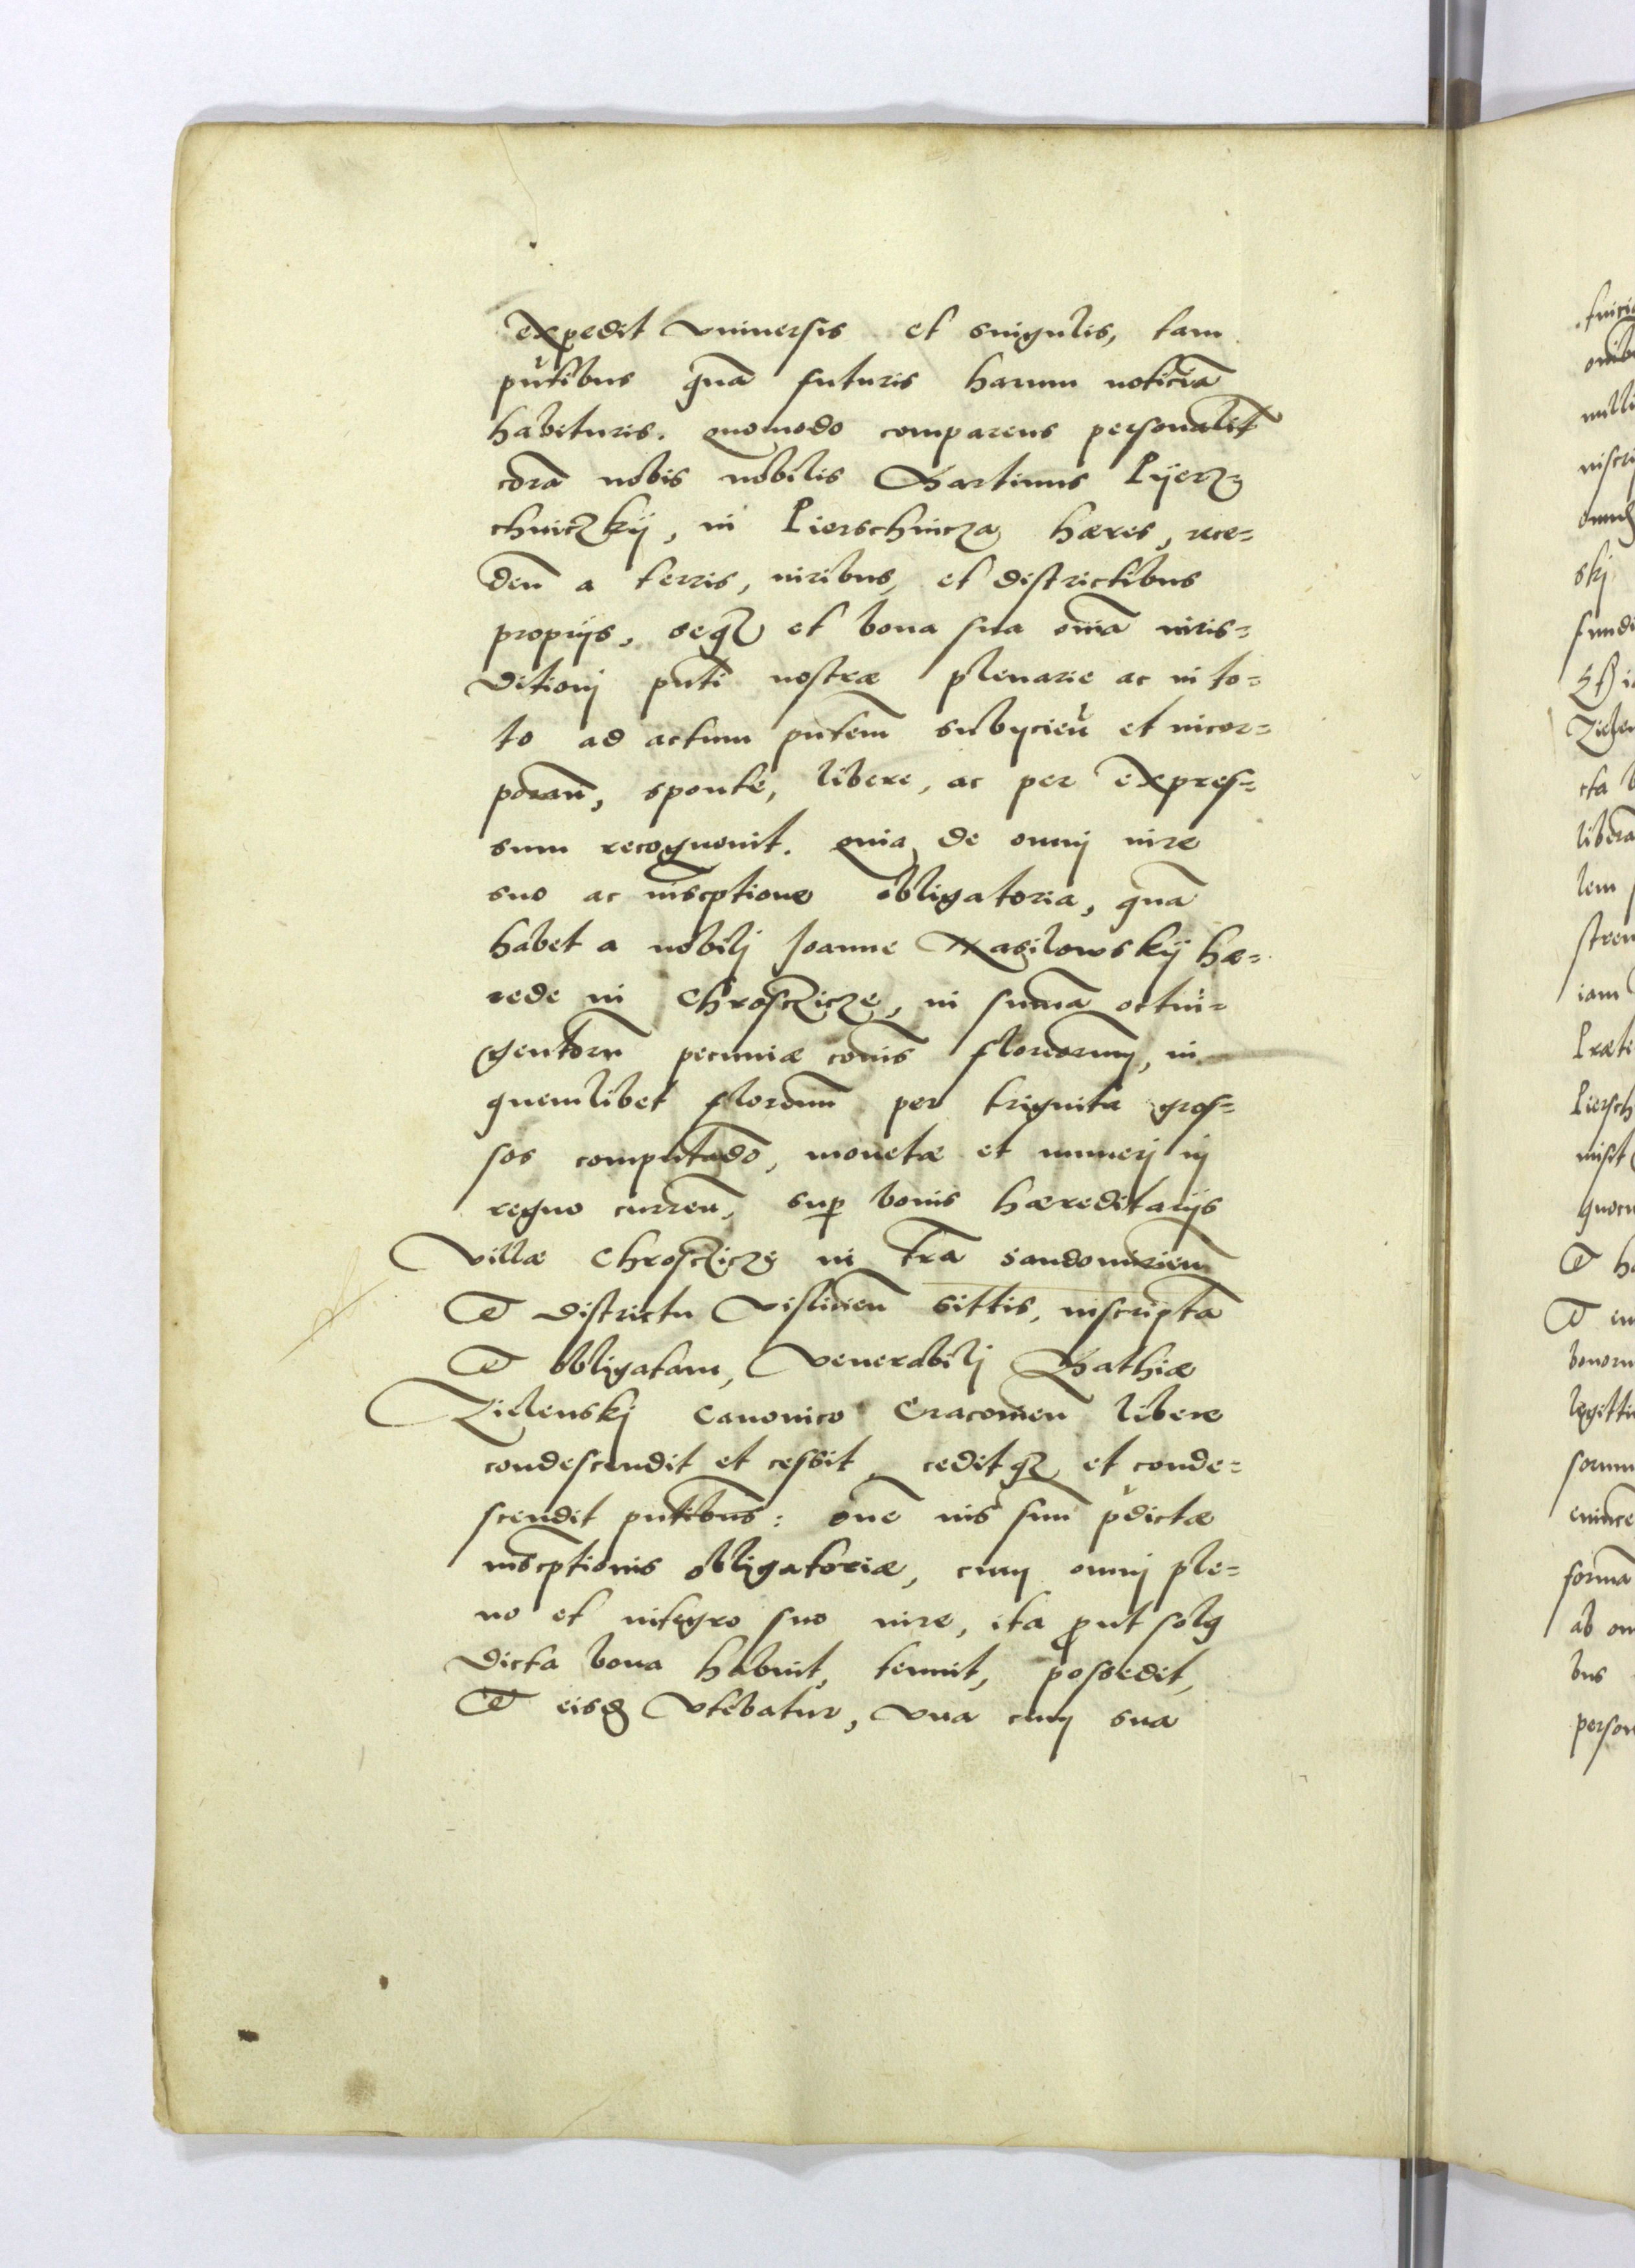 expedit vniuersis et singulis, tam
pñtibus quã futuris harum noticiã
habituris. quomodo comparens personalit̃
corã nobis nobilis Martinus Pyerz
chniczkÿ, in Pierschnicza hæres, rece=
deñ a terris, iuribus, et districtibus
proprijs, seqȝ et bona sua oĩa iuris=
ditionj pñti nostræ plenarie ac in to=
to ad actum pñtem subijcieñ et incor=
porañ, sponte, libere, ac per expres=
sum recognouit. quia de omnj iure
suo ac inscptione obligatoria, quã
habet a nobilj Joanne Nagilowskÿ hæ=
rede in Chrosczicze, in summa octin=
gentorũ pecuniæ cõis florenorum, in
quemlibet florenum per triginta gros=
sos computãdo, monetæ et numerj in
regno curreñ, sup bonis hæreditarijs
villæ Chrosczicze in tra Sandomirieñ
Et districtu Vislicieñ sittis, inscriptã
Et obligatam, Venerabilj Mathiæ
Zielenskj Canonico Cracouieñ libere
condescendit et cessit, ceditqȝ et conde=
scendit pñtibus: oẽ ius suũ p̃dictæ
inscptionis obligatoriæ, cum omnj ple=
no et integro suo iure, ita prout solg
dicta bona habuit, tenuit, possedit,
Et eisd vtebatur, vna cum sua